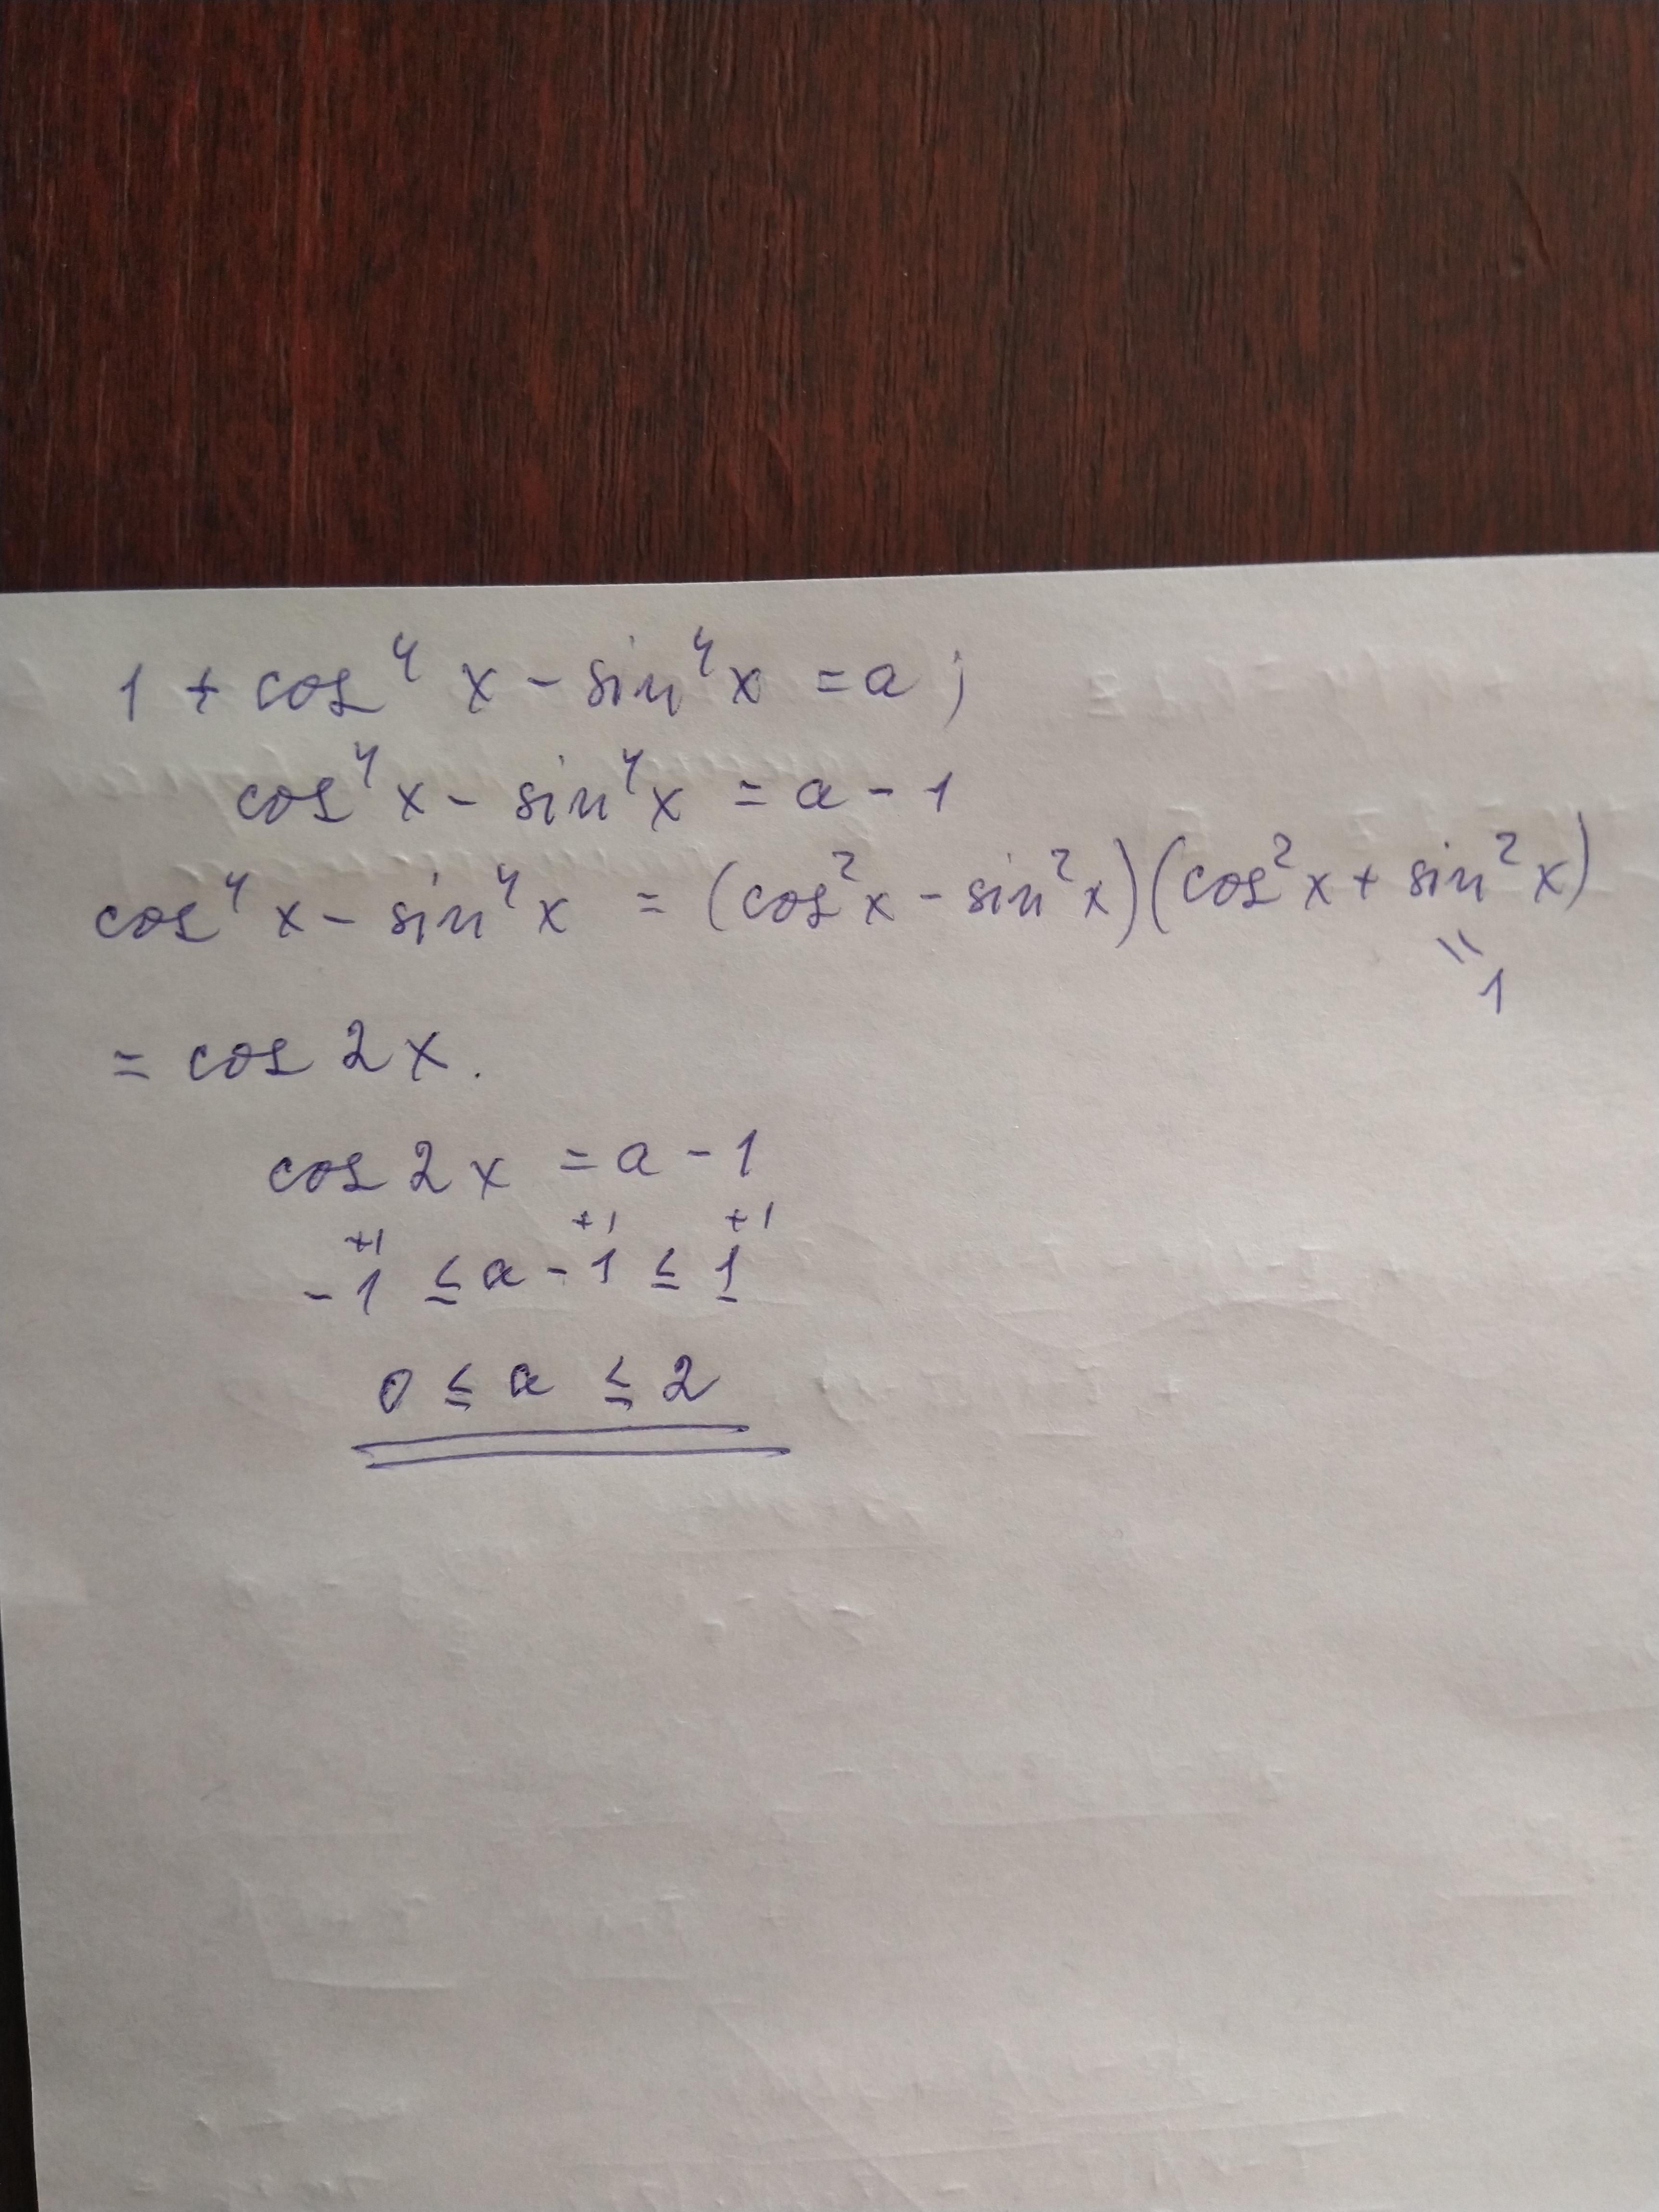 1 + cos⁴ x - sin⁴x = a ;
cos⁴x - sin⁴x = a - 1
cos⁴x - sin⁴x = (cos²x - sin²x)(cos²x + sin²x)
= 1
= cos 2x.
cos 2x = a - 1
+1 +1 +1
-1 ≤ a - 1 ≤ 1
0 ≤ a ≤ 2